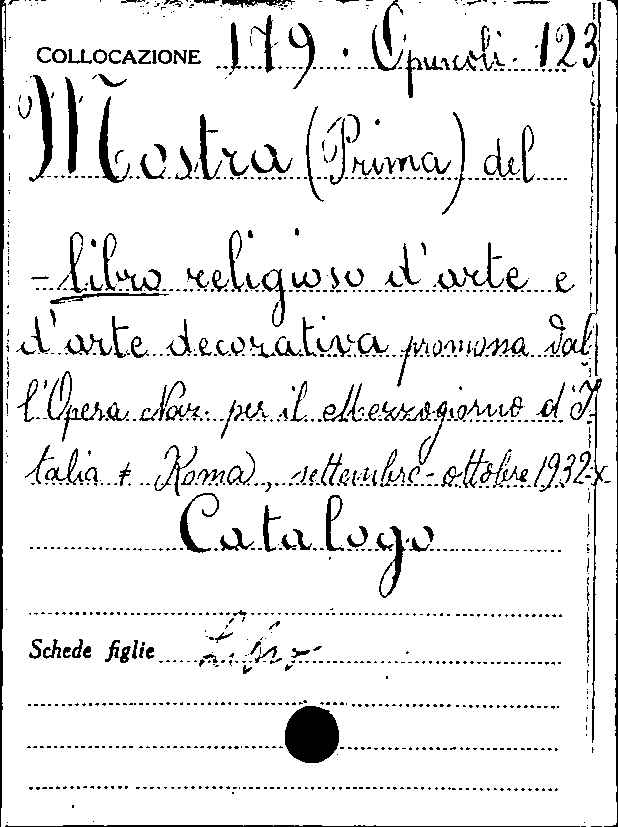 COLLOCAZIONE 179 . Opuscoli. 123
Mostra (Prima) del
- libro religioso d'arte e
d'arte decorativa promossa dal-
l'Opera Naz. per il Mezzogiorno d'I-
talia + Roma, settembre-ottobre 1932-X-
Catalogo
Schede figlie Libro